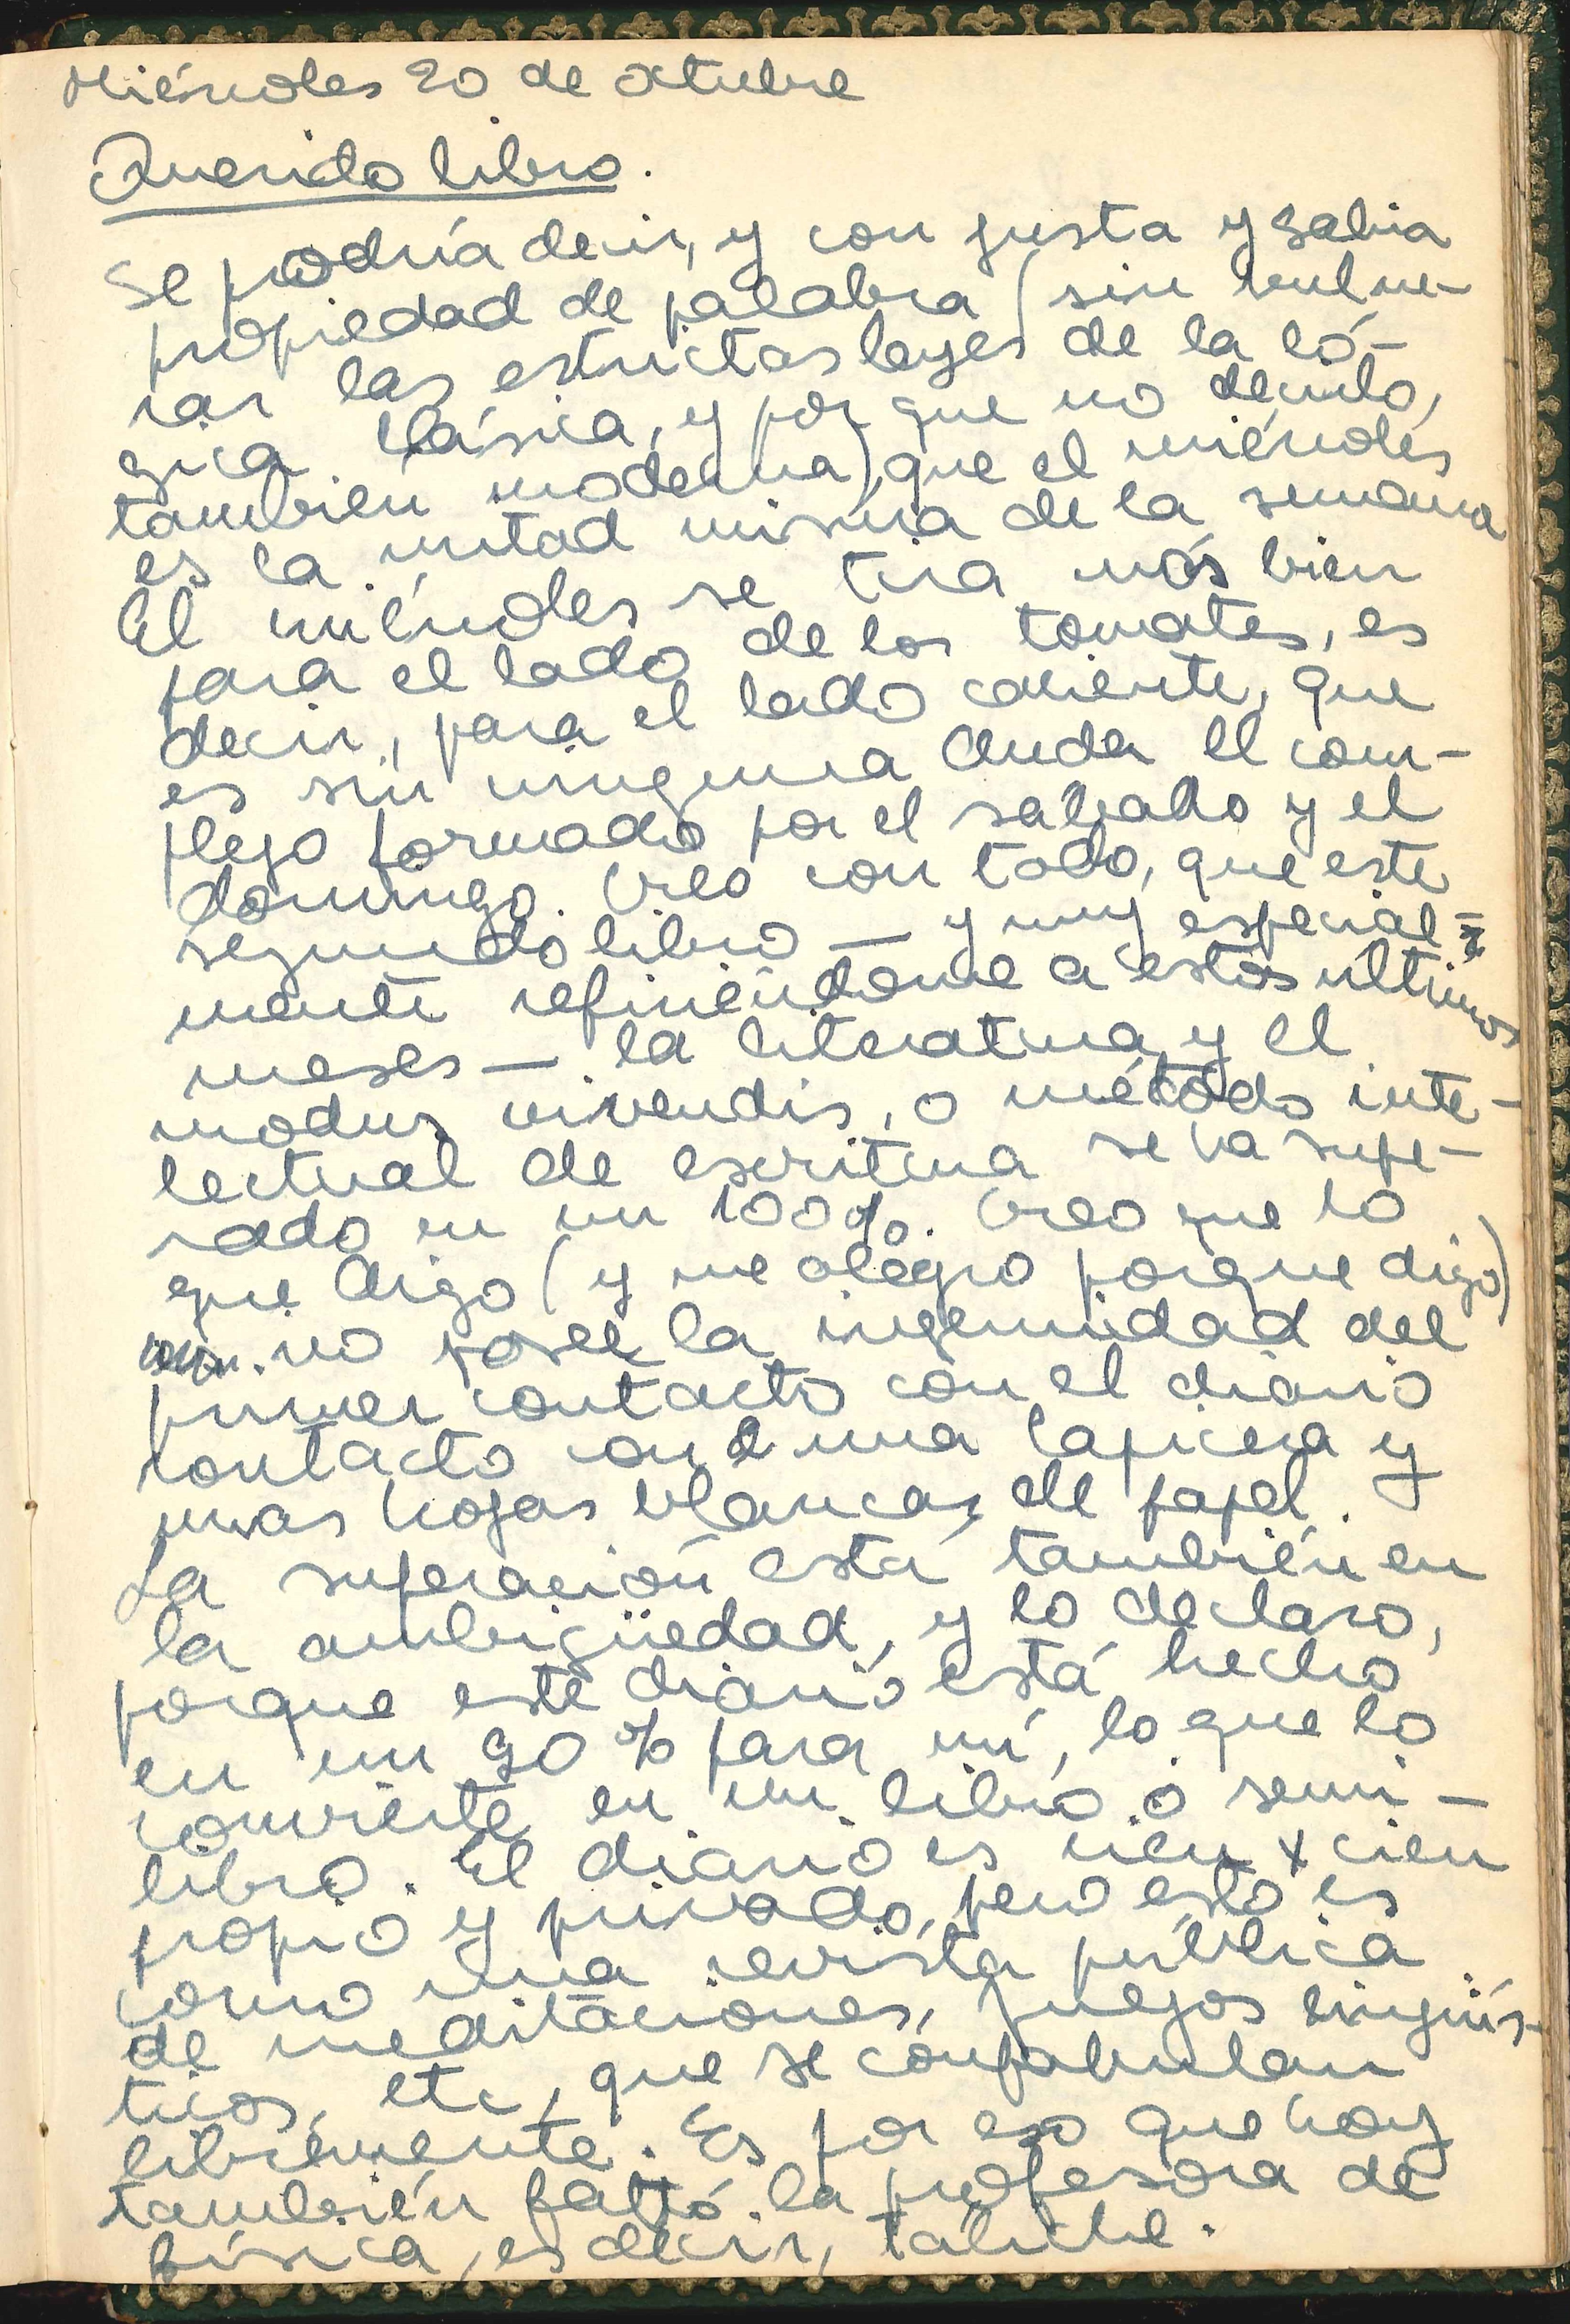 Miércoles 20 de octubre
Querido libro.
Se podría decir, y con justa y sabia
propiedad de palabra (sin vulne-
rar las estrictas leyes de la ló-
gica clásica, y por que no decirlo,
también moderna), que el miércoles
es la mitad misma de la semana
El miércoles se tira más bien
para el lado de los tomates, es
decir, para el lado caliente, que
es sin ninguna duda el com-
plejo formado por el sabado y el
domingo. Creo con todo, que este
segundo libro — y muy especial=
mente refiriéndome a estos ultimos
meses — la literatura y el
modus vivendis, o método inte-
lectual de escritura se va supe-
rado en un 100%. Creo que lo
que digo (y me alegro porque digo)
no posee la ingenuidad del
primer contacto con el diario
contacto con una lapicera y
unas hojas blancas de papel.
La superación está también en
la ambigüedad, y lo declaro,
porque este diario está hecho
en un 90% para mí, lo que lo
convierte en un libro o semi-
libro. El diario es cien x cien
propio y privado, pero esto es
como una revista pública
de meditaciones, juegos lingüís-
ticos, etc, que se confabulan
libremente. Es por eso que hoy
también faltó la profesora de
física, es decir, taliche.